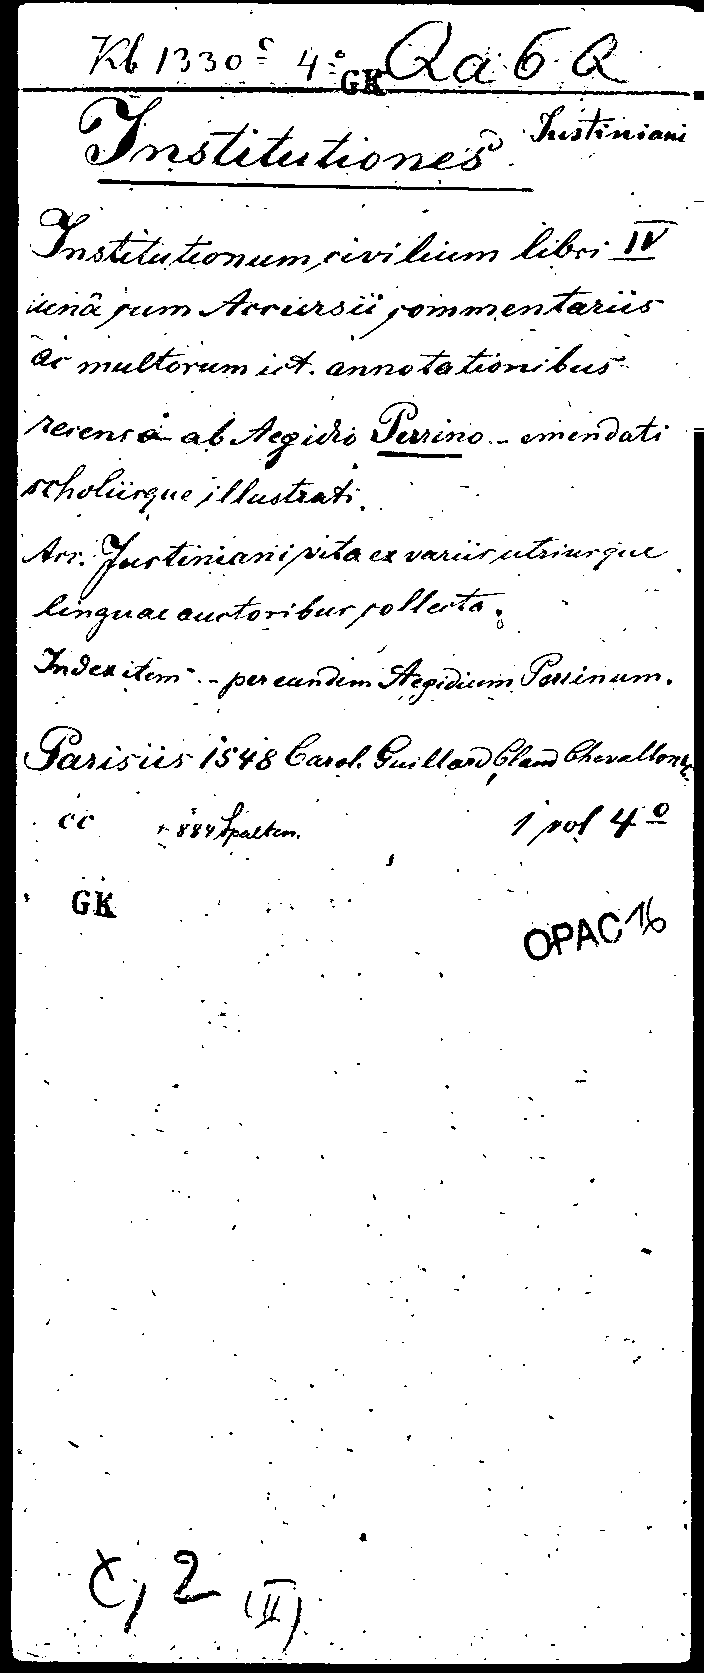 Kb 1330 c 4° GK Qa 6 Q
Institutiones Iustiniani
Institutionum civilium libri IV
unâ cum Accursii commentariis
ac multorum ict. annotationibus
recens a ab Aegidio Perrino - emendati
scholiisque illustrati.
Acc. Justiniani vita ex variis utriusque
linguae auctoribus collecta.
Index item - per eundem Aegidium Perrinum.
Parisiis 1548 Carol. Guillard, Claud Chevallon
cc 884 Spalten. 1 vol 4°
GK
OPAC 16
c, 2 (II)